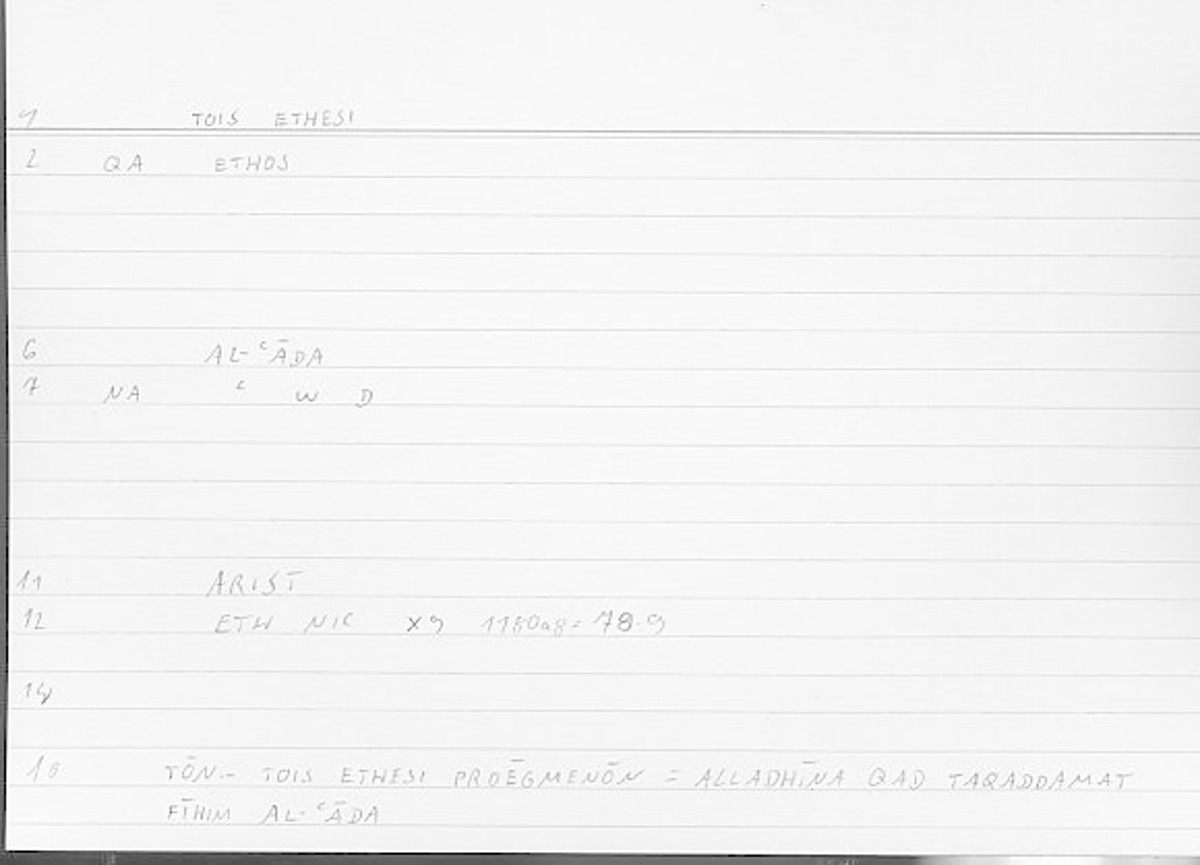 1 TOIS ETHESI
2 QA ETHOS
6 AL-ʿĀDA
7 NA ʿ W D
11 ARIST
12 ETH NIC X9 1180a8 = 78.9
14
16 TŌN - TOIS ETHESI PROĒGMENŌN = ALLADHĪNA QAD TAQADDAMAT
FĪHIM AL-ʿĀDA